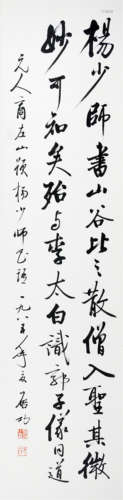 楊少師書山谷比之散僧入聖其微
妙可知矣殆与李太白識郭子儀同道
元人商左山題楊少師書語一九八八年夏启功